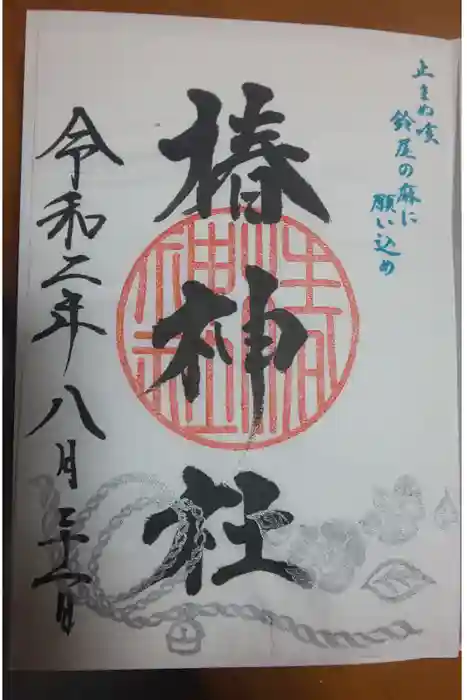 止まぬ咳
鈴屋の麻に
願い込め
椿神社
令和二年八月三十一日